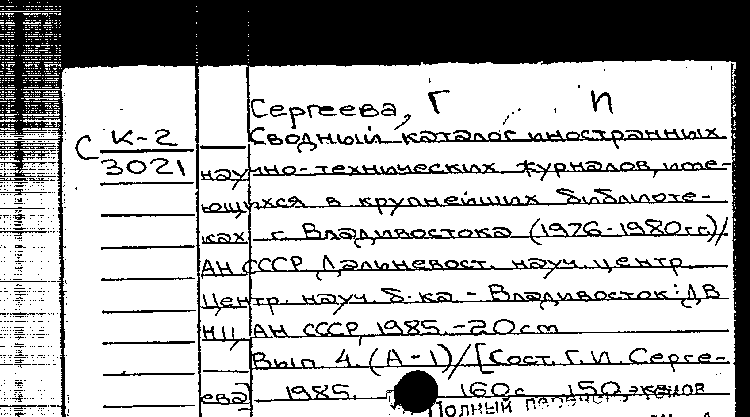 Сергеева, Г И
С К-2 Сводный каталог иностранных
3021 научно-технических журналов, име-
ющихся в крупнейших библиоте-
ках г. Владивостока (1976-1980гг)/
АН СССР Дальневост. науч. центр.
Центр. науч. б-ка - Владивосток: ДВ
НЦ АН СССР, 1985. -20cm
Вып. 4. (A-I)/[Сост. Г.И. Серге-
ева] 1985. 160с. 150 экз
Полный